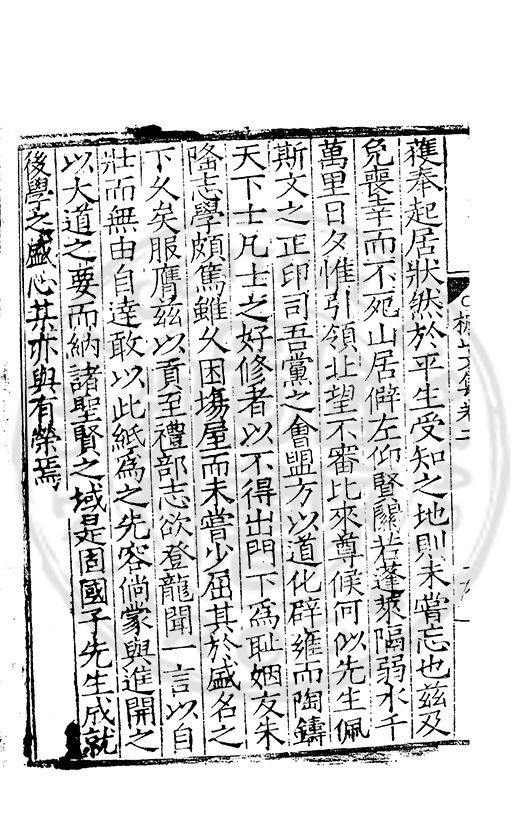 獲奉起居狀然於平生受知之地則未嘗忘也兹及
免喪幸而不死山居僻左仰賢關若蓬萊隔弱水千
萬里日夕惟引領北望不審比來尊候何似先生佩
斯文之正印司吾黨之會盟方以道化辟雍而陶鑄
天下士凡士之好修者以不得出門下為恥姻友朱
隆志學頗篤雖久困塲屋而未嘗少屈其於盛名之
下久矣服膺兹以貢至禮部志欲登龍聞一言以自
壯而無由自達敢以此紙為之先客倘蒙與進開之
以大道之要而納諸聖賢之域是固國子先生成就
後學之盛心其亦與有榮焉
文集卷